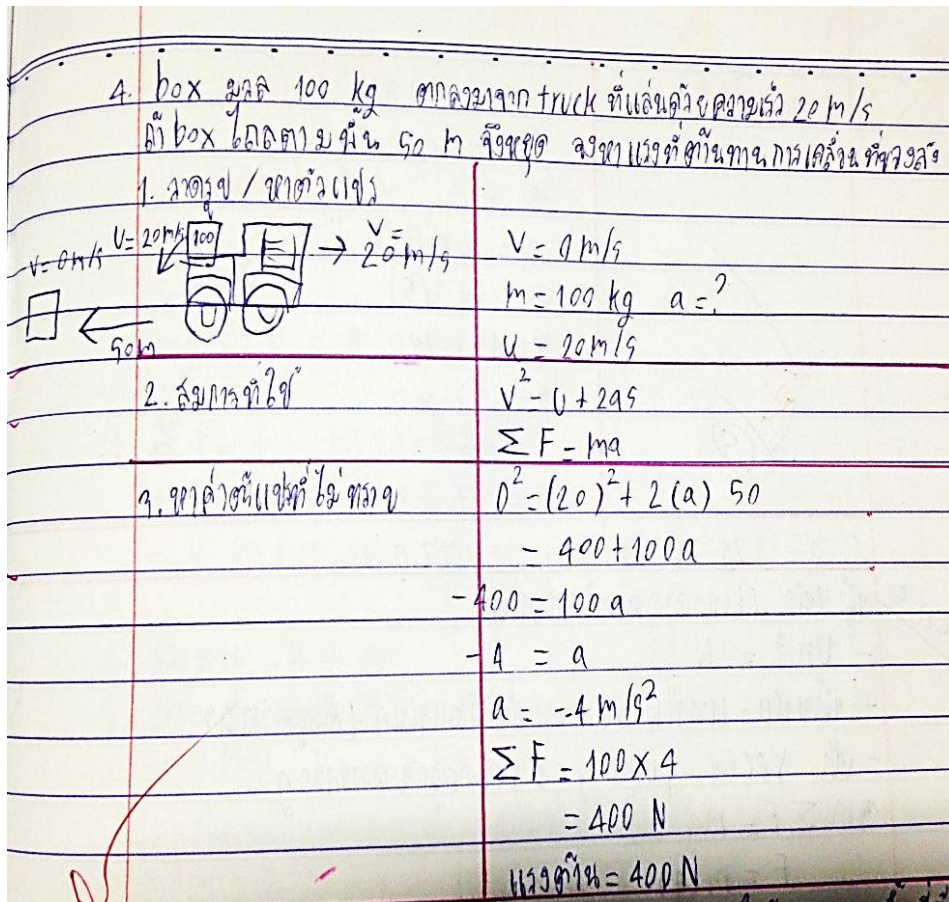 4. box มวล 100 kg ตกลงมาจาก truck ที่แล่นด้วยความเร็ว 20 m/s
ถ้า box ไถลตามพื้น 50 m จึงหยุด จงหาแรงที่ต้านทานการเคลื่อนที่ของลัง
1. วาดรูป / หาตัวแปร
V = 0 m/s
U = 20 m/s
100
V =
20 m/s
50 m
V = 0 m/s
m = 100 kg a = ?
u = 20 m/s
2. สมการที่ใช้
V² = U + 2as
∑F = ma
3. หาค่าตัวแปรที่ไม่ทราบ
0² = (20)² + 2(a) 50
= 400 + 100a
-400 = 100a
-4 = a
a = -4 m/s²
∑F = 100 x 4
= 400 N
แรงต้าน = 400 N